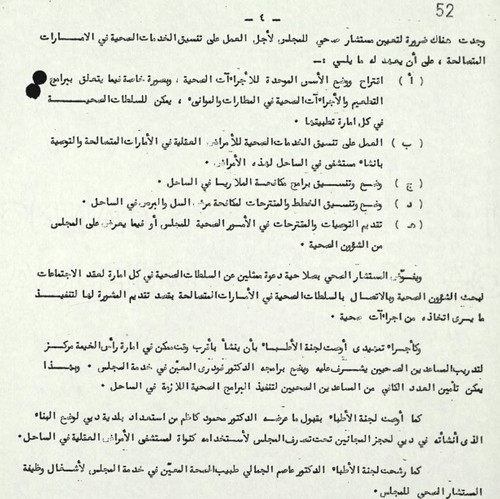 52
- ٤ -
وجدت هناك ضرورة لتعيين مستشار صحي للمجلس لأجل العمل على تنسيق الخدمات الصحية في الامارات
المتصالحة ، على أن يعهد له ما يلي :-
( أ ) اقتراح ووضع الأسس الموحدة للأجراءآت الصحية ، وبصورة خاصة فيما يتعلق ببرامج
التطعيم والأجراءآت الصحية في المطارات والموانئ ، يمكن للسلطات الصحية
في كل امارة تطبيقها .
( ب ) العمل على تنسيق الخدمات الصحية للأمراض العقلية في الأمارات المتصالحة والتوصية
بانشاء مستشفى في الساحل لهذه الأمراض .
( ج ) وضع وتنسيق برامج مكافحة الملاريا في الساحل .
( د ) وضع وتنسيق الخطط والمقترحات لمكافحة مرض السل والبرص في الساحل .
( هـ ) تقديم التوصيات والمقترحات في الأمور الصحية للمجلس أو فيما يعرض على المجلس
من الشؤون الصحية .
ويفوّض المستشار الصحي بصلاحية دعوة ممثلين عن السلطات الصحية في كل امارة لعقد الاجتماعات
لبحث الشؤون الصحية وبالاتصال بالسلطات الصحية في الأمارات المتصالحة بقصد تقديم المشورة لها لتنفيذ
ما يرى اتخاذه من اجراءآت صحية .
وكأجراء تمهيدى أوصت لجنة الأطباء بأن ينشأ بأقرب وقت ممكن في امارة رأس الخيمة مركز
لتدريب المساعدين الصحيين يشرف عليه ويضع برامجه الدكتور المعيّن في خدمة المجلس . وبهذا
يمكن تأمين العدد الكافي من المساعدين الصحيين لتنفيذ البرامج الصحية اللازمة في الساحل .
كما أوصت لجنة الأطباء بقبول ما عرضه الدكتور محمود كاظم بن استعداد بلدية دبي لوضع البناء
الذى أنشأته في دبي لحجز المجانين تحت تصرف المجلس لأستخدامه كنواة لمستشفى الأمراض العقلية في الساحل .
كما رشحت لجنة الأطباء الدكتور عاصم الجمالي طبيب الصحة المعيّن في خدمة المجلس لأشغال وظيفة
المستشار الصحي للمجلس .